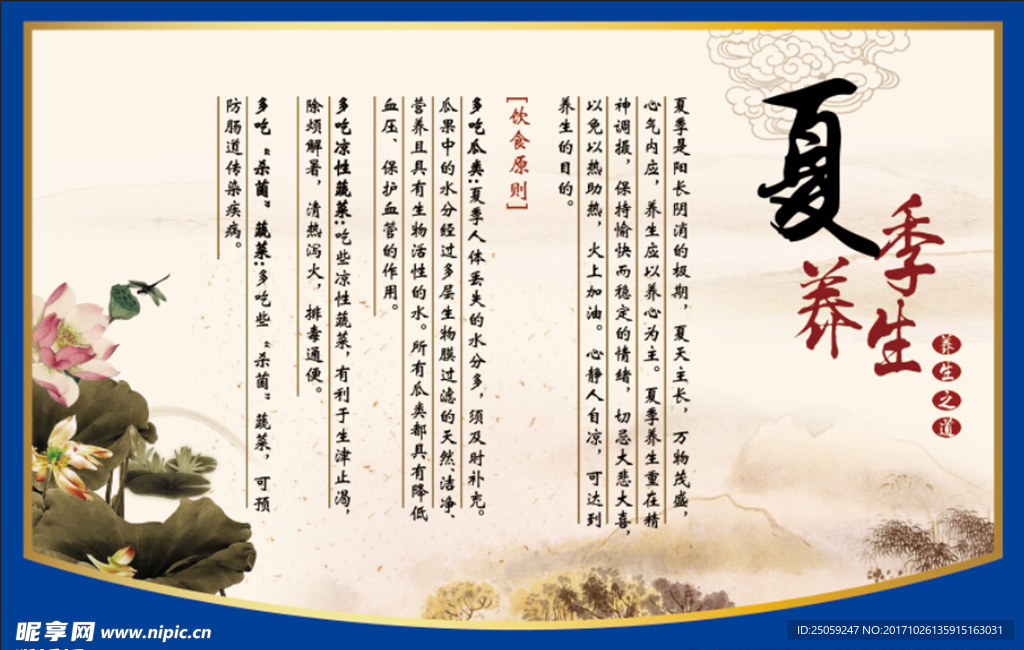 夏
季
养
生
养生之道
夏季是阳长阴消的极期，夏天主长，万物茂盛，
心气内应，养生应以养心为主。夏季养生重在精
神调摄，保持愉快而稳定的情绪，切忌大悲大喜，
以免以热助热，火上加油。心静人自凉，可达到
养生的目的。
[饮食原则]
多吃瓜类：夏季人体丢失的水分多，须及时补充。
瓜果中的水分经过多层生物膜过滤的天然、洁净、
营养且具有生物活性的水。所有瓜类都具有降低
血压、保护血管的作用。
多吃凉性蔬菜：吃些凉性蔬菜，有利于生津止渴，
除烦解暑，清热泻火，排毒通便。
多吃“杀菌”蔬菜：多吃些“杀菌”蔬菜，可预
防肠道传染疾病。
昵享网 www.nipic.cn
ID:25059247 NO:20171026135915163031